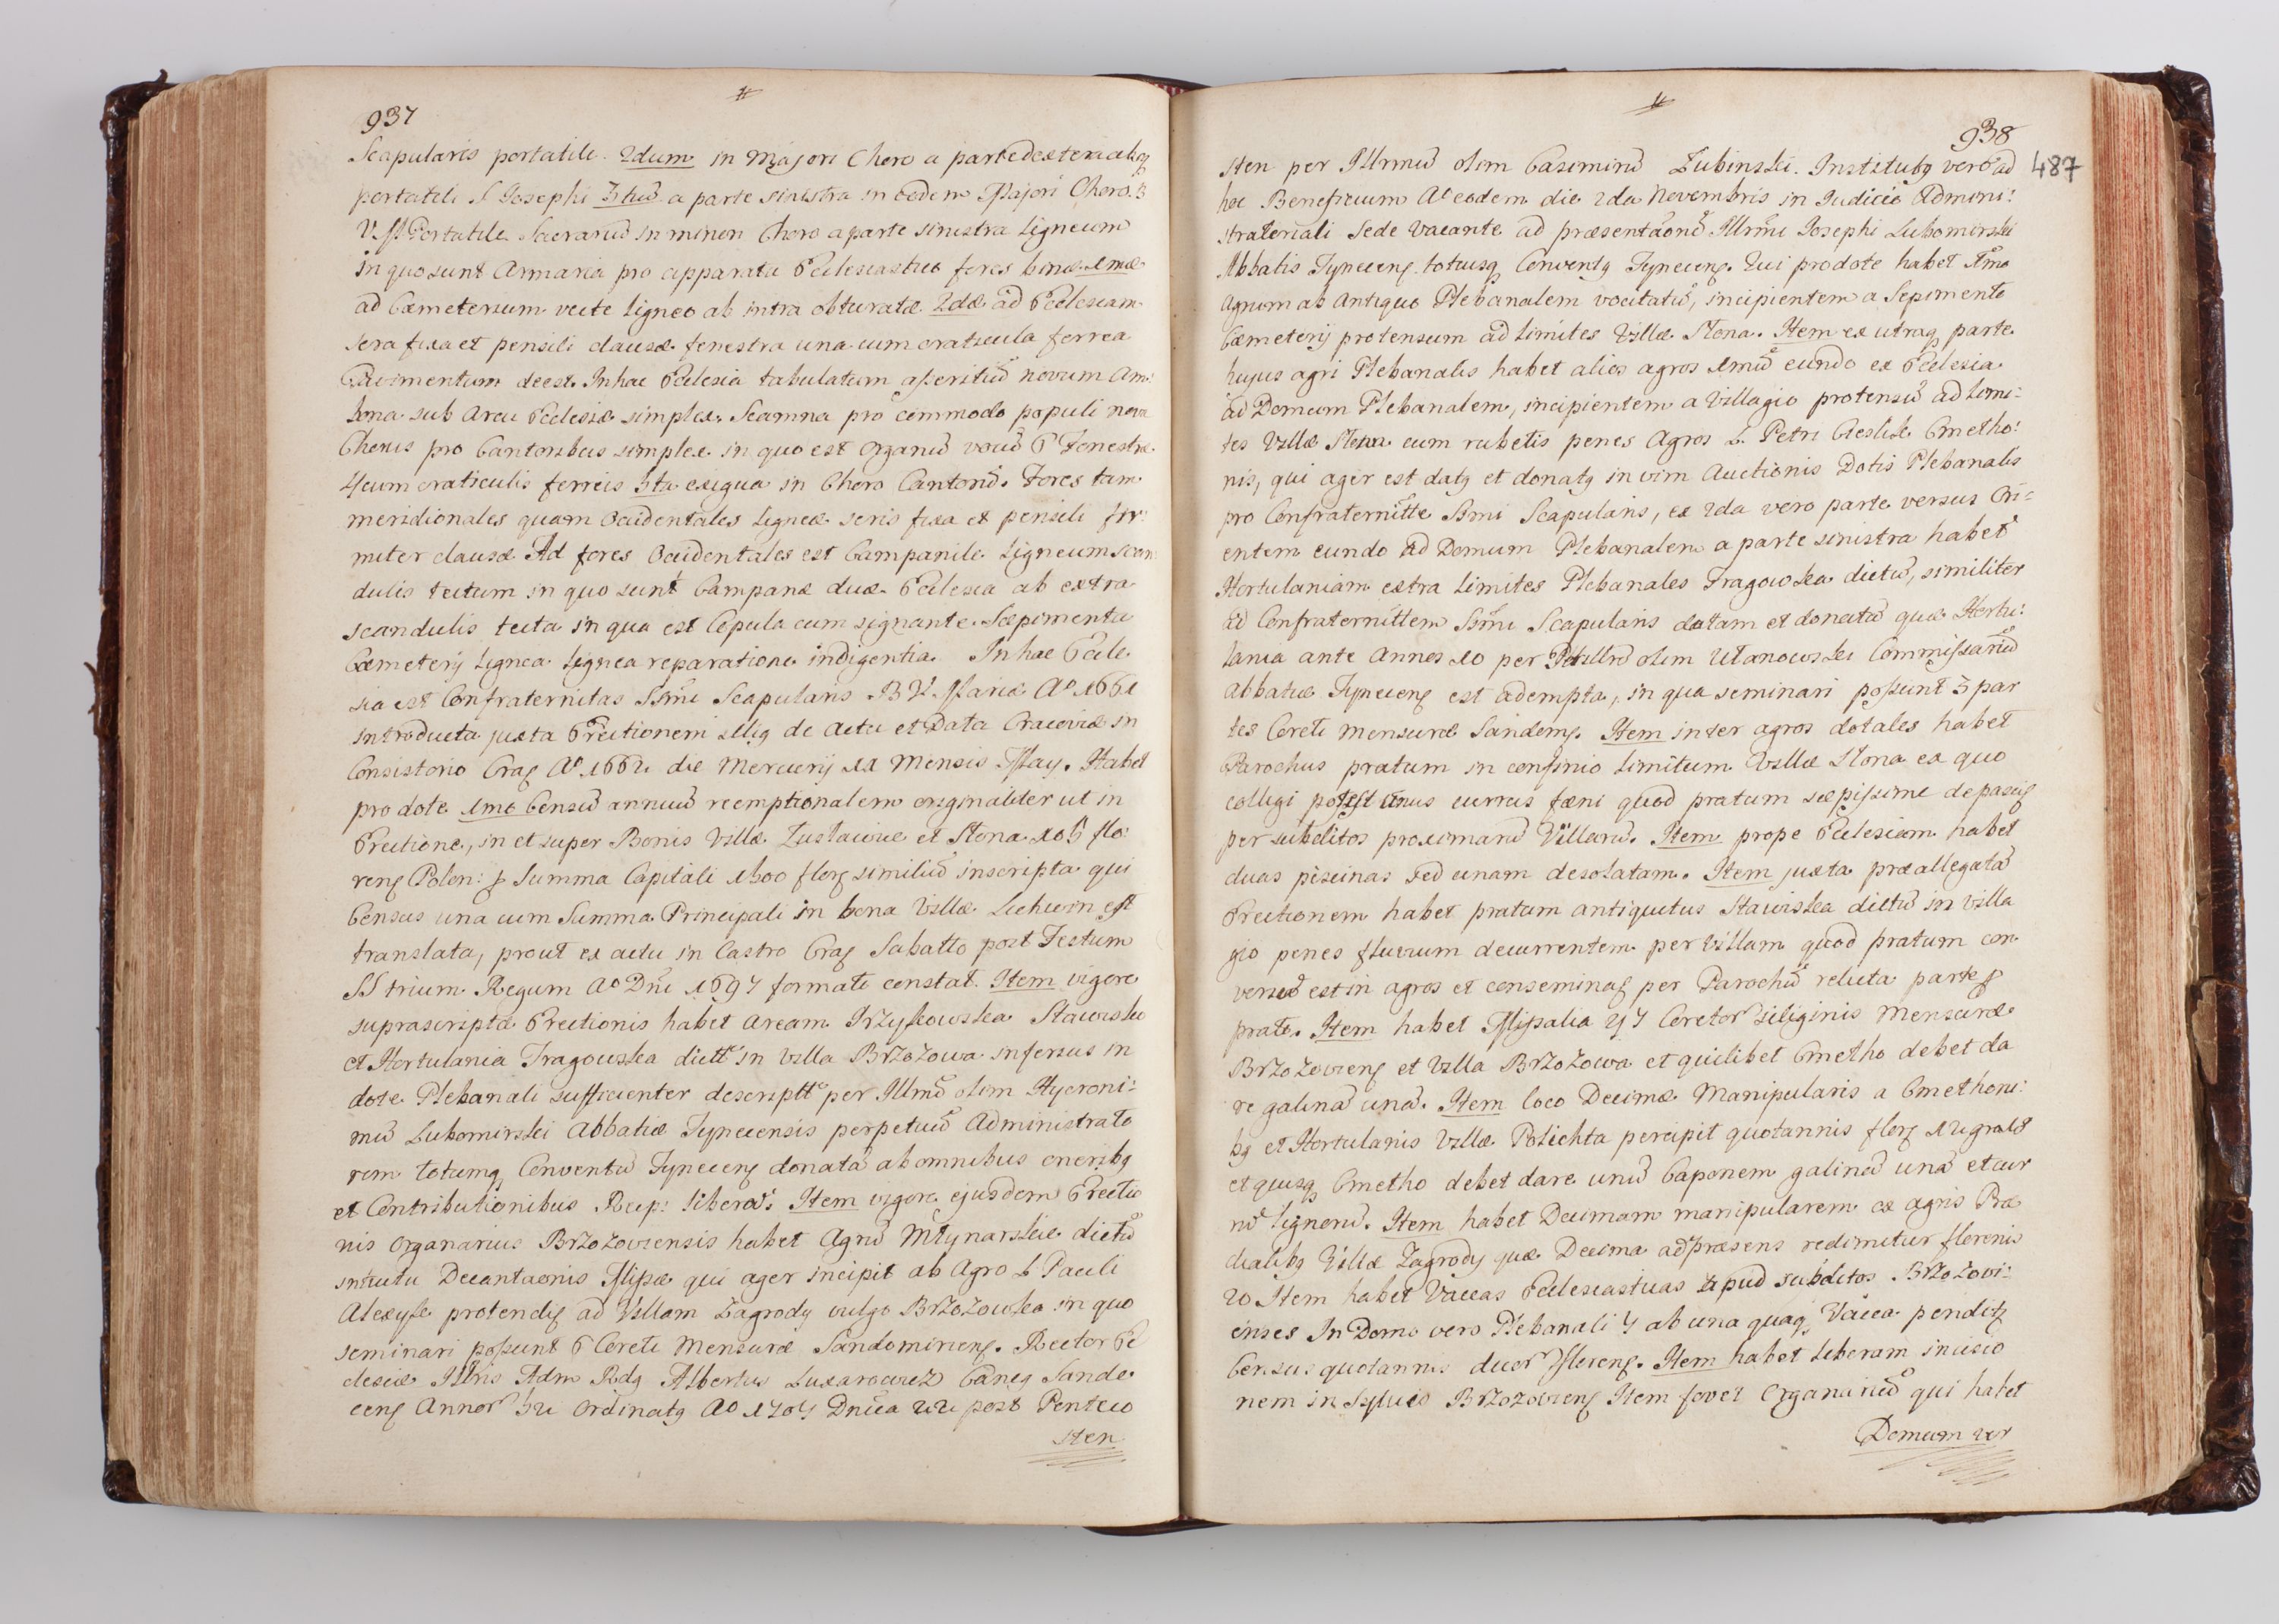 937
Scapularis portatile. 2dum in Majori Choro a parte dextera absq
portatili S Josephi 3tiũ a parte sinistra in eodem Majori Choro. B
V. M. Portatile Sacrariũ in minori Choro a parte sinistra Ligneum
in quo sunt Armaria pro apparatu Ecclesiastico fores binæ 1mæ
ad Cæmeterium vecte Ligneo ab intra obturatæ 2dæ ad Ecclesiam
sera fixa et pensili clausæ fenestra una cum craticula ferrea
Pavimentum deest. In hac Ecclesia tabulatum asseritiũ novum Am:
bona sub Arcu Ecclesiæ simplex. Scamna pro commodo populi nova
Chorus pro Cantoribus simplex in quo est Organũ vocũ 6 Fenestræ
4 cum craticulis ferreis 5ta exigua in Choro Cantorũ. Fores tam
meridionales quam Occidentales Ligneæ seris fixa et pensili fir:
miter clausæ Ad fores Occidentales est Campanile Ligneum scan
dulis tectum in quo sunt Campanæ duæ Ecclesia ab extra
scandulis tecta in qua est Cupula cum signante. Sæpimenta
Cæmeterÿ Lignea Lignea reparatione indigentia. In hac Eccle
sia est Confraternitas Ssmi Scapularis B V. Mariæ Aº 1661
introducta juxta Erectionem illiq de Actu et Data Cracoviæ in
Consistorio Crac Aº 1662 die Mercurÿ 11 Mensis May. Habet
pro dote 1mo Censũ annuũ reemptionalem originaliter ut in
Erectione, in et super Bonis Villæ Lusławice et Stona 105 flo:
renos Polon: p Summa Capitali 1500 flor similiũ inscripta qui
Census una cum Summa Principali in bona Villæ Lichwin est
translata, prout ex actu in Castro Crac Sabatto post Festum
SS trium Regum Aº Dni 1697 formate constat. Item vigore
suprascriptæ Erectionis habet Aream Irzykowska Stawisko
et Hortulania Fragowska dictt in Villa Brzozowa inferius in
dote Plebanali sufficienter descriptt per Illmũ olim Hyeroni:
mũ Lubomirski Abbatiæ Tynecensis perpetuũ Administrato
rem totumq Conventũ Tynecens donata ab omnibus oneribq
et Contributionibus Reip: libera: Item vigore ejusdem Erectio
nis Organarius Brzozoviensis habet Agrũ Młynarskie dictũ
intuitu Decantaonis Missæ qui ager incipit ab Agro L Pauli
Alexyk protendis ad Villam Zagrody vulgo Brzozowka in quo
seminari possunt 6 Coreti Mensuræ Sandomiriens. Rector Ec
clesiæ Illris Adm Rdq Albertus Luxarowicz Canq Sande
cens Annor 52 Ordinatq Aº 1704 Dnica 22 post Penteco
sten
938
487
sten per Illrmũ olim Casimirũ Łubinski. Institutq vero ad
hoc Beneficium Aº eodem die 2da Novembris in Judicio Admini:
strateriali Sede Vacante ad præsentaonẽ Illrmi Josephi Lubomirski
Abbatis Tynecens totiusq Conventq Tynecens. Qui pro dote habet 1mo
Agrum ab Antiquo Plebanalem vocitatũ, incipientem a Sepimento
Cæmeterÿ protensum ad Limites Villæ Stona. Item ex utraq parte
hujus agri Plebanalis habet alios agros 1mũ eundo ex Ecclesia
ad Domum Plebanalem, incipientem a Villagio protensũ ad Limi:
tes Villæ Stona cum rubetis penes Agros L. Petri Cieslik Cmetho:
nis, qui ager est datq et donatq in vim Auctionis Dotis Plebanalis
pro Confraternitte Ssmi Scapularis, ex 2da vero parte versus Ori:
entem eundo ad Domum Plebanalem a parte sinistra habet
Hortulaniam extra Limites Plebanales Fragowska dictũ, similiter
ad Confraternittem Ssmi Scapularis datam et donatũ quæ Hortu:
lania ante Annos 10 per olim Ulanowski Commissariũ
Abbatiæ Tynecens est adempta, in qua seminari possunt 3 par
tes Coreti Mensuræ Sandoms. Item inter agros dotales habet
Parochus pratum in confinio Limitum Villæ Stona ex quo
colligi potest unus currus fæni quod pratum sæpissime depascis
per subditos proximarũ Villarũ. Item prope Ecclesiam habet
duas piscinas sed unam desolatam. Item juxta præallegatã
Erectionem habet pratum antiquitus Stawiska dictũ in Villa
gio penes fluvium decurrentem per Villam quod pratum con
versũ est in agros et conseminas per Parochũ relicta parte p
prato. Item habet Missalia 47 Coretor Siliginis Mensuræ
Brzozoviens et Villa Brzozowa et quilibet Cmetho debet da
re galinã unã. Item loco Decimæ Manipularis a Cmethoni:
bq et Hortulanis Villæ Polichta percipit quotannis flors 12 gro 18
et quisq Cmetho debet dare unũ Caponem galinã unã et cur
rũ lignorũ. Item habet Decimam manipularem ex agris Præ
dialibq Villæ Zagrody quæ Decima ad præsens redimitur florenis
20 Item habet Vaccas Ecclesiasticas apud subditos Brzozovi:
enses In Domo vero Plebanali 4 ab una quaq Vacca penditq
Census quotannis duor Florens. Item habet Liberam incisio
nem in Sylvis Brzozoviens Item fovet Organariũ qui habet
Domum ver